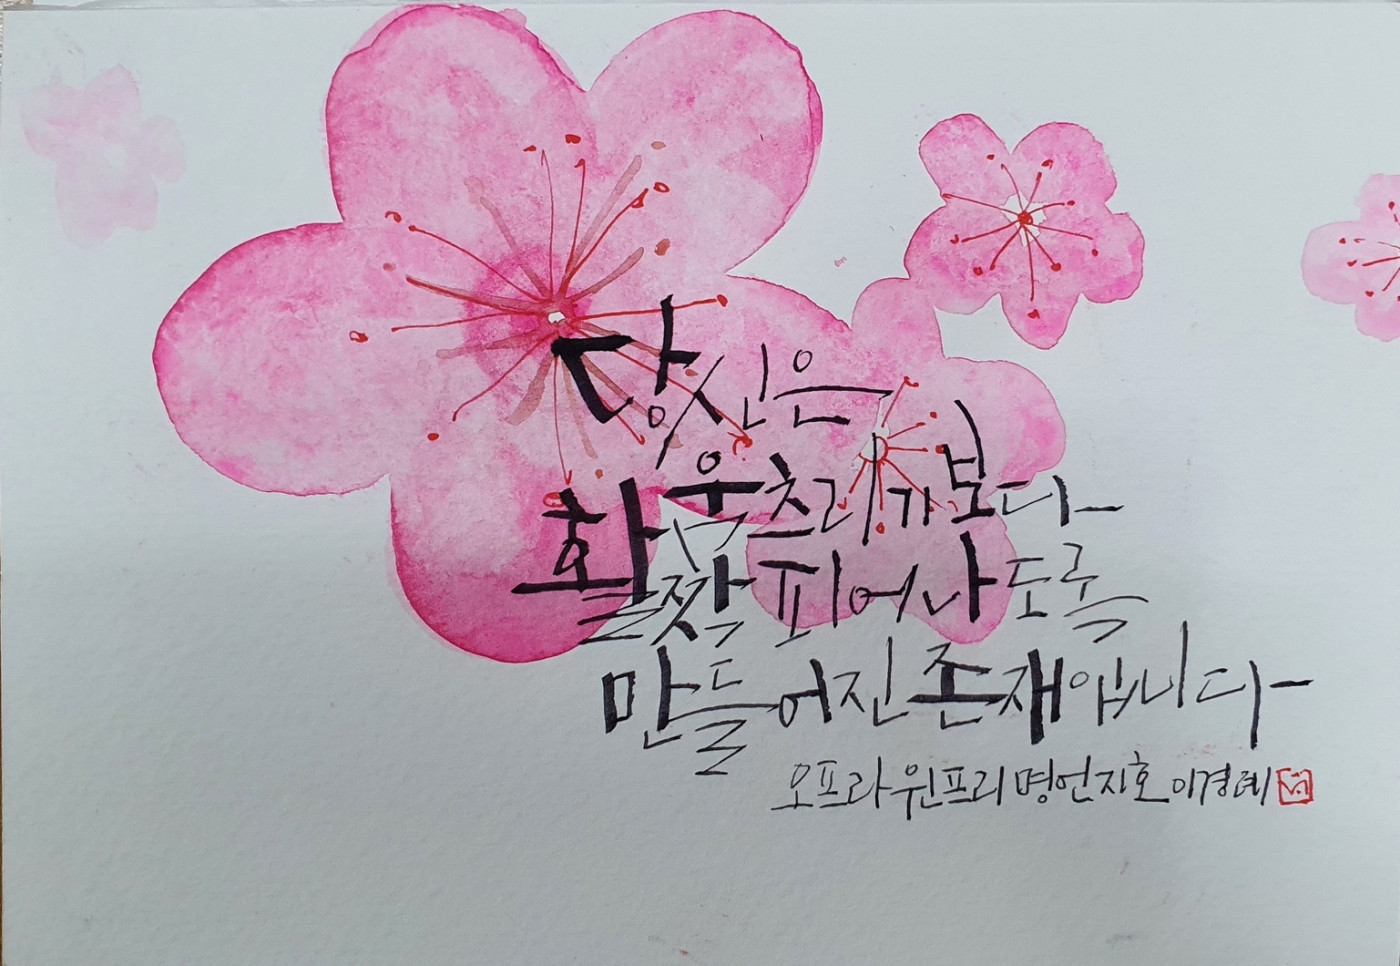 당신은
움츠리기보다
활짝 피어나도록
만들어진 존재입니다
오프라 윈프리 명언 지호 이경례